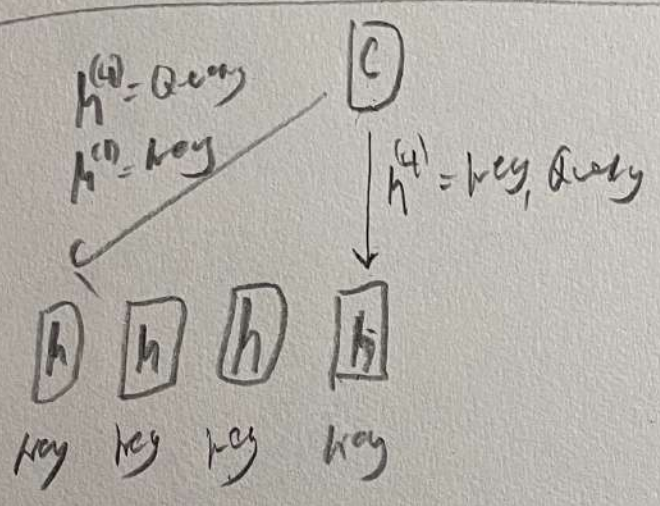 C
h⁽⁴⁾ = Query
h⁽¹⁾ = key
h⁽⁴⁾ = key, Query
h h h h
key key key key